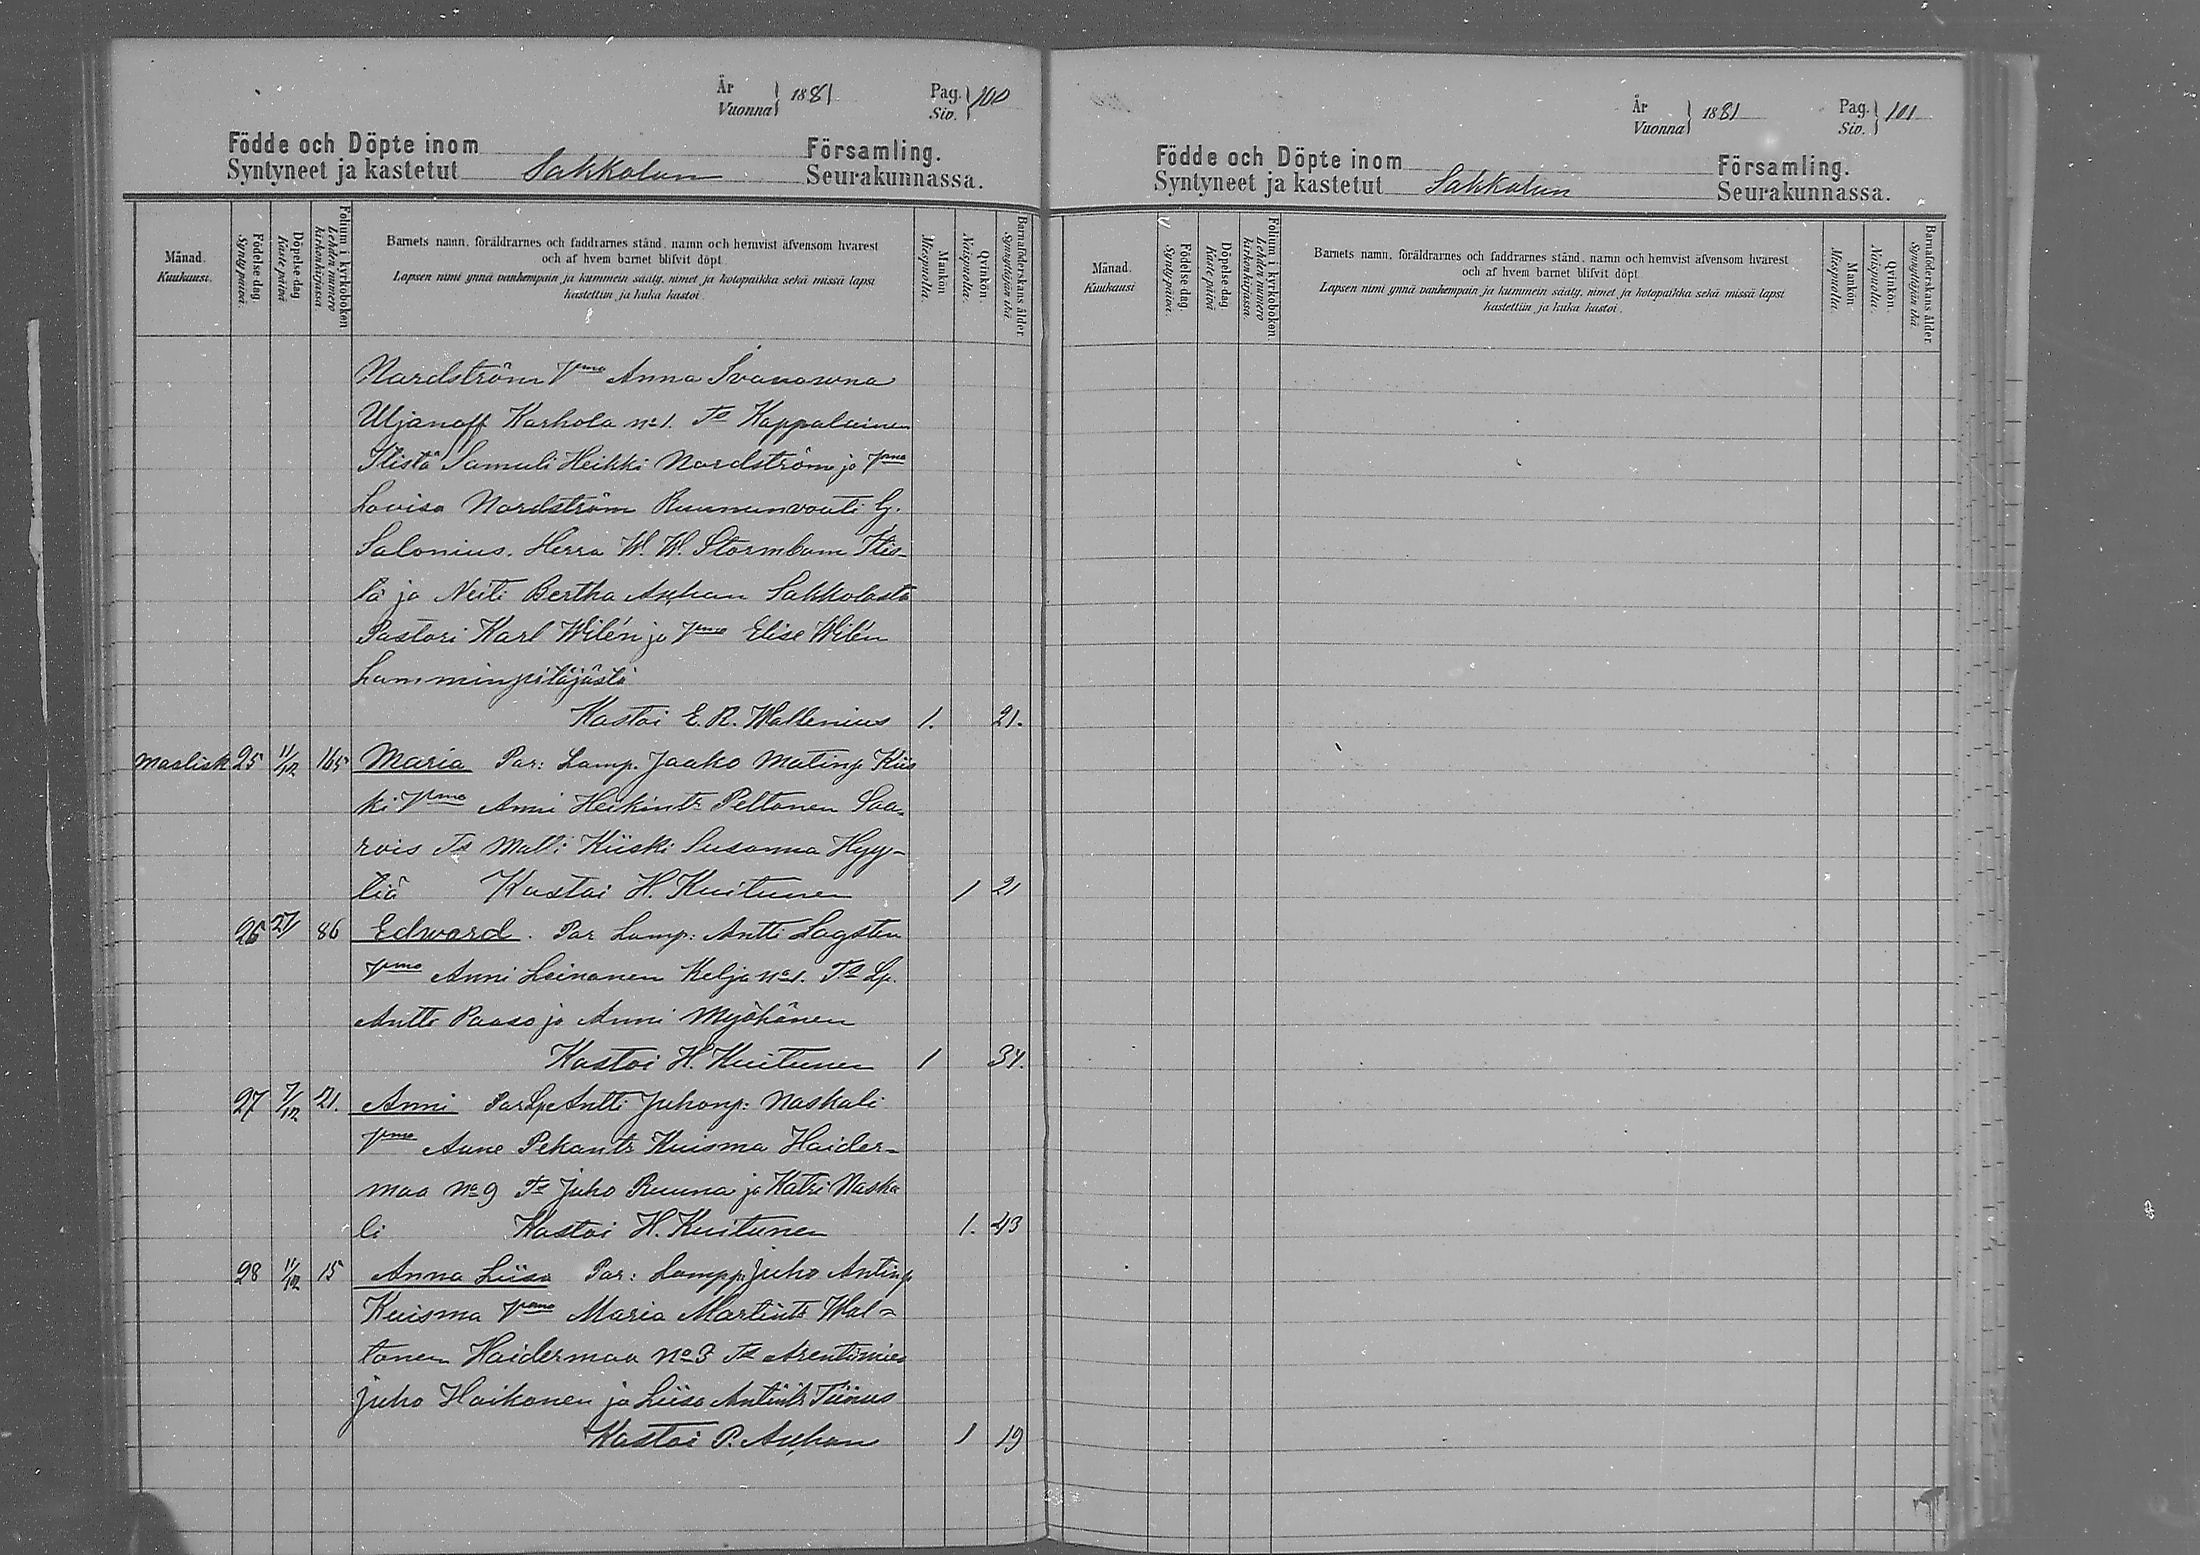 År
Vuonna } 1881 Pag.
Siv. } 100
Födde och Döpte inom Församling.
Syntyneet ja kastetut Sakkolan Seurakunnassa.
Månad.
Kuukausi.
Födelse dag.
Synty päivä.
Döpelse dag
Kaste päivä
Folium i kyrkoboken
Lehden numero
kirkonkirjassa.
Barnets namn, föräldrarnes och faddrarnes stånd, namn och hemvist äfvensom hvarest
och af hvem barnet blifvit döpt.
Lapsen nimi ynnä vanhempain ja kummein sääty, nimet ja kotopaikka sekä missä lapsi
kastettiin ja kuka kastoi.
Mankön
Miespuolta.
Qvinkön
Naispuolta.
Barnaföderskans ålder.
Synnyttäjän ikä.
Nordström Vmo Anna Ivanowna
Uljanoff Karhola No 1. Ts Kappalainen
Itistä Samuli Heikki Nordström ja Vmo
Lovisa Nordström Ruununvouti G.
Salonius. Herra W. W. Stormbom Itis-
tä ja Neiti Bertha Auhan Sakkolasta
Pastori Karl Wilén ja Vmo Elise Wilén
Lamminpitäjästä
Kastoi E. R. Wallenius 1. 21.
Maalisk 25 11/12 165 Maria Par: Lamp. Jaako Matinp Kiis
ki Vmo Anni Heikint: Peltonen Saa-
rois Ts Matti Kiiski Susanna Hyy-
tiä Kastoi H. Kuitunen 1 21
26 27/ 86 Edward. Par Lamp: Antti Lagsten
Vmo Anni Leinonen Kelja No 1. Ts Lp.
Antti Paaso ja Anni Myöhänen
Kastoi H. Kuitunen 1 34.
27 7/12 21. Anni Par Lp Antti Juhonp: Naskali
Vmo Anne Pekantr Kuisma Haider-
maa No 9 Ts Juho Ruuna ja Katri Naska
li Kastoi H. Kuitunen 1. 43
28 11/12 15 Anna Liisa Par: Lampp Juho Antinp
Kuisma Vmo Maria Martintr Wal-
tonen Haidermaa No 3 Ts Arentimies
Juho Haikonen ja Liisa Antintr
Kastoi P. Auhan 1 19
År
Vuonna } 1881 Pag.
Siv. } 101
Födde och Döpte inom Församling.
Syntyneet ja kastetut Sakkolan Seurakunnassa.
Månad.
Kuukausi
Födelse dag.
Synty päivä.
Döpelse dag
Kaste päivä
Folium i kyrkoboken.
Lehden numero
kirkonkirjassa.
Barnets namn, föräldrarnes och faddrarnes stånd, namn och hemvist äfvensom hvarest
och af hvem barnet blifvit döpt.
Lapsen nimi ynnä vanhempain ja kummein sääty, nimet ja kotopaikka sekä missä lapsi
kastettiin ja kuka kastoi.
Mankön
Miespuolta.
Qvinkön.
Naispuolta.
Barnaföderskans ålder.
Synnyttäjän ikä.